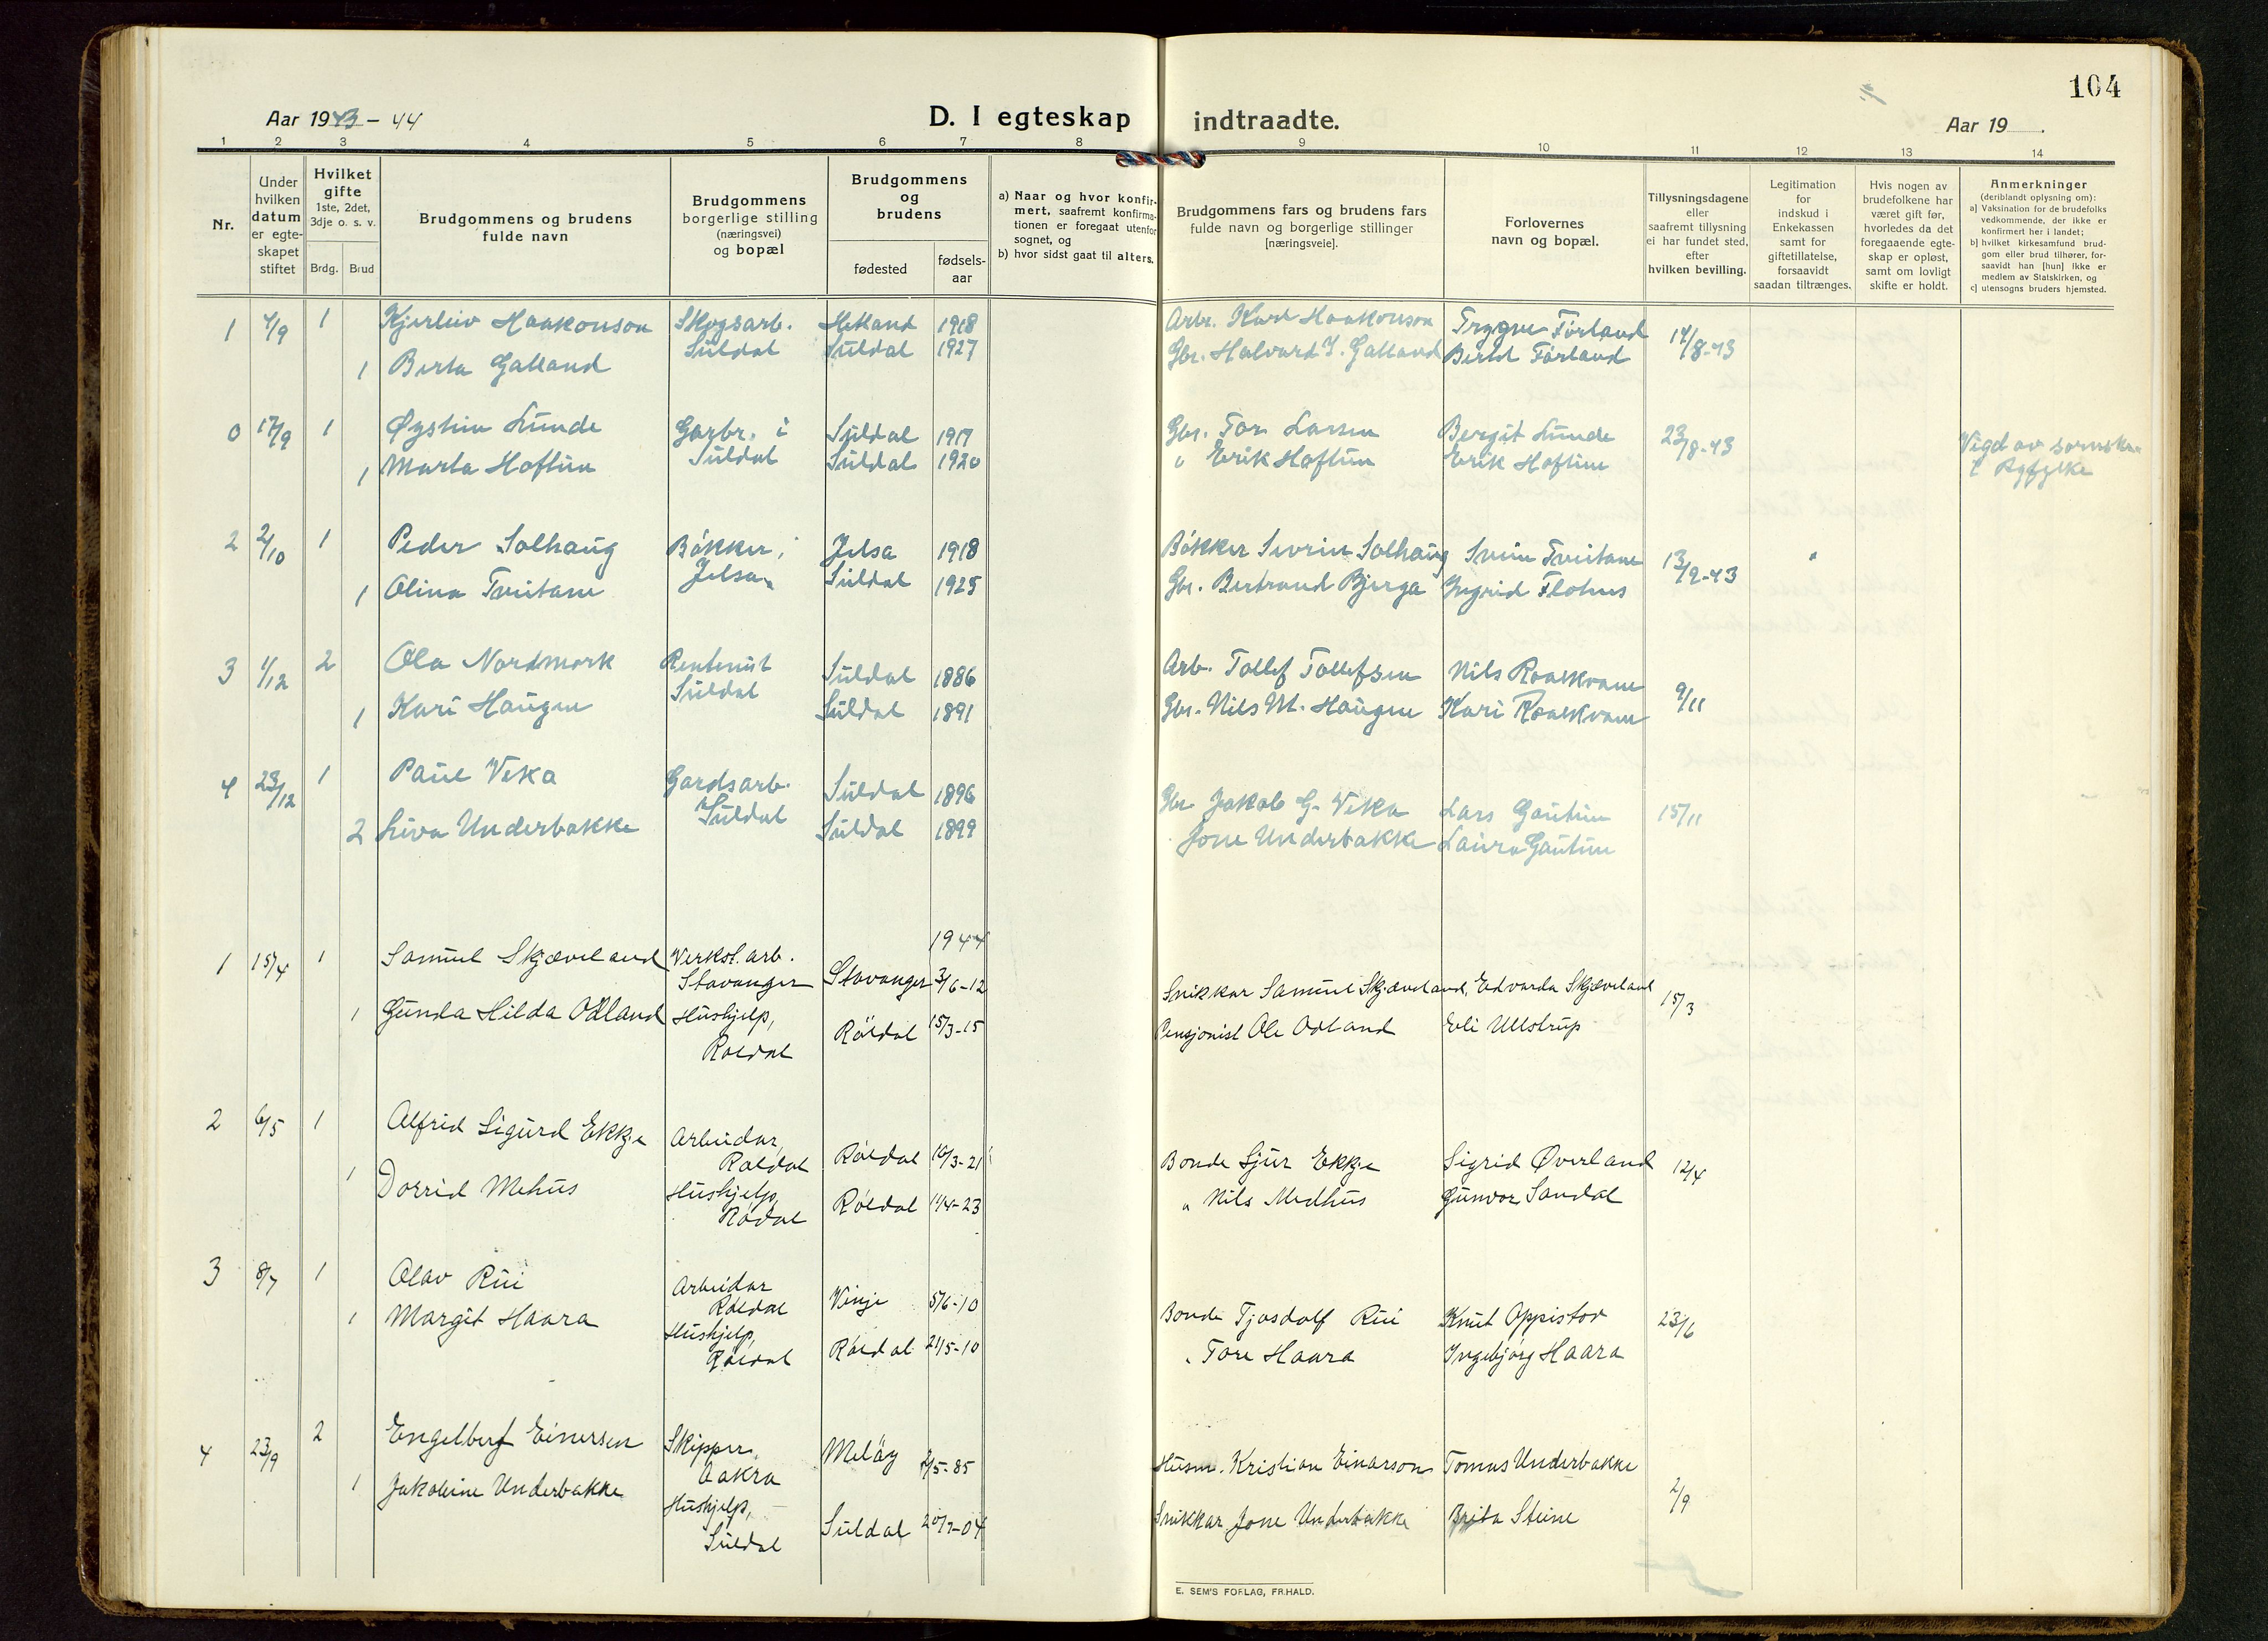 104
Aar 1943 - 44
D. I egteskap indtraadte.
Aar 19
1 2 3 4 5 6 7 8 9 10 11 12 13 14
Nr.
Under hvilken datum er egte-skapet stiftet
Hvilket gifte 1ste, 2det, 3dje o. s. v.
Brdg. Brud
Brudgommens og brudens fulde navn
Brudgommens borgerlige stilling (næringsvei) og bopæl
Brudgommens og brudens
fødested
fødsels-aar
a) Naar og hvor konfir-mert, saafremt konfirma-tionen er foregaat utenfor sognet, og
b) hvor sidst gaat til alters.
Brudgommens fars og brudens fars fulde navn og borgerlige stillinger [næringsveie].
Forlovernes navn og bopæl.
Tillysningsdagene eller saafremt tillysning ei har fundet sted, efter hvilken bevilling.
Legitimation for indskud i Enkekassen samt for giftetillatelse, forsaavidt saadan tiltrænges.
Hvis nogen av brudefolkene har været gift før, hvorledes da det foregaaende egte-skap er opløst, samt om lovligt skifte er holdt.
Anmerkninger (deriblandt oplysning om):
a) Vaksination for de brudefolks vedkommende, der ikke er konfirmert her i landet;
b) hvilket kirkesamfund brud-gom eller brud tilhører, for-saavidt han [hun] ikke er medlem av Statskirken, og
c) utensogns bruders hjemsted.
1 4/9 1 Kjerleiv Haakonson Skogsarb. Hetland 1918 Arbr. Karl Haakonson Trygve Førland 14/8-43
Suldal
1 Berta Galland Suldal 1927 Gbr. Halvard J. Galland Berta Førland
0 17/9 1 Øystein Lunde Garbr. i Suldal 1917 Gbr. Tor Larsen Bergit Lunde 23/8-43 Vigd av sorenskr.
Suldal
1 Marta Hoftun Suldal 1920 " Erik Hoftun Erik Hoftun i Ryfylke
2 2/10 1 Peder Solhaug Bøkker i Jelsa 1918 Bøkker Sevrin Solhaug Svein Tveitane 13/9-43
Jelsa
1 Olina Tveitane Suldal 1925 Gbr. Bertrand Bjerga Ingrid Flotnes
3 1/12 2 Ola Nordmork Rentenist Suldal 1886 Arb. Tollef Tollefsen Nils Roalkvam 9/11
Suldal
1 Kari Haugen Suldal 1891 Gbr. Nils M. Haugen Kari Roalkvam
4 23/12 1 Paul Veka Gardsarb. Suldal 1896 Gbr. Jakob G. Veka Lars Gautun 15/11
Suldal
2 Liva Underbakke Suldal 1899 Jone Underbakke Laura Gautun
1944
1 15/4 1 Samuel Skjæveland Verkst. arb. Stavanger 3/6-12 Snikkar Samuel Skjæveland, Edvarda Skjæveland 15/3
Stavanger
1 Gunda Hilda Odland Hushjelp, Röldal 15/3-15 Pensjonist Ole Odland Eli Ullstrup
Roldal
2 6/5 1 Alfrid Sigurd Ekkje Arbeidar, Röldal 10/3-21 Bonde Sjur Ekkje Sigrid Øverland 12/4
Roldal
1 Dorrid Mehus Hushjelp, Röldal 11/4-23 " Nils Medhus Gunvor Sandal
Rödal
3 8/7 1 Olav Rui Arbeidar Vinje 5/6-10 Bonde Tjosdolf Rui Knut Oppistov 23/6
Röldal
1 Margit Haara Hushjelp, Röldal 21/5-10 " Tore Haara Ingebjørg Haara
Röldal
4 23/9 2 Engelbert Einersen Skipper, Meløy 2/5-85 Husm. Kristian Einarson Tomas Underbakke 2/9
Aakra
1 Jakobine Underbakke Hushjelp, Suldal 20/7-04 Snikkar Jone Underbakke Brita Steine
Suldal
E. SEM'S FORLAG, FR.HALD.